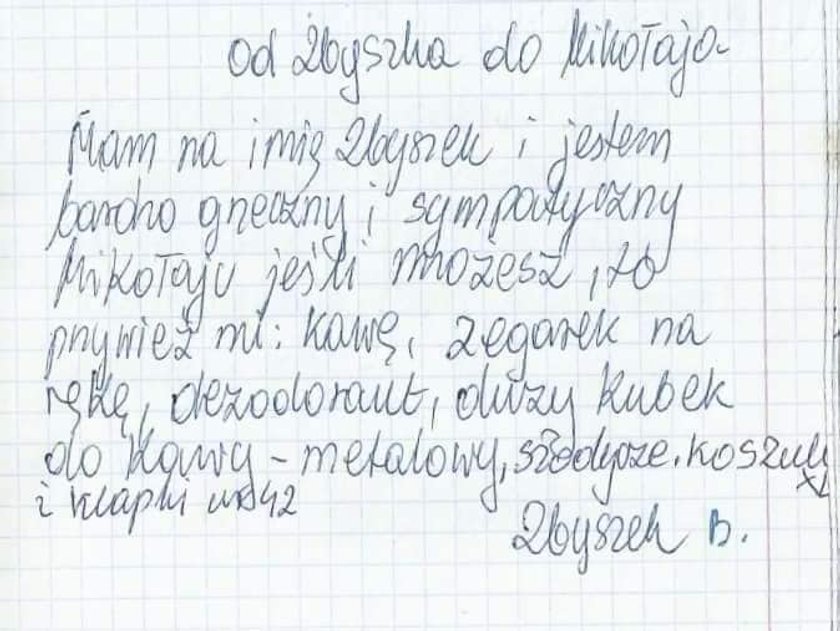 od Zbyszka do Mikołaja
Mam na imię Zbyszek i jestem
bardzo grzeczny i sympatyczny
Mikołaju jeśli możesz, to
przywieź mi: kawę, zegarek na
rękę, dezodorant, duży kubek
do kawy - metalowy, słodycze. koszulę
XL
i klapki nr 42
Zbyszek B.